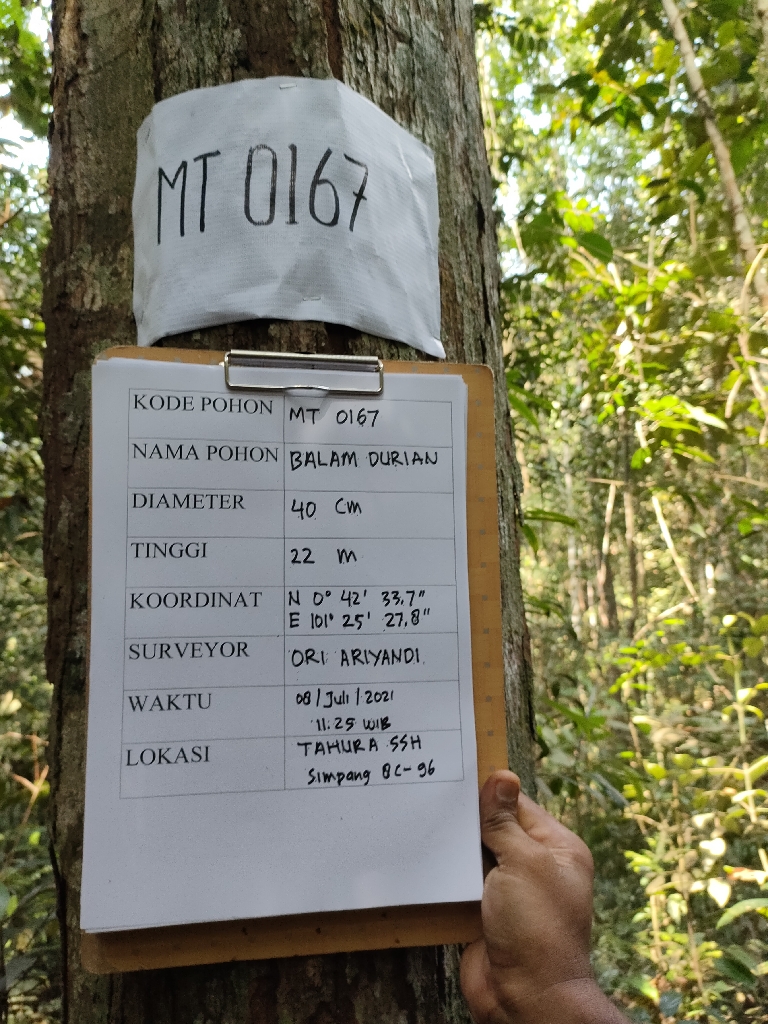 MT 0167
KODE POHON MT 0167
NAMA POHON BALAM DURIAN
DIAMETER 40 Cm
TINGGI 22 m
KOORDINAT N 0° 42' 33,7"
E 101° 25' 27,8"
SURVEYOR ORI ARIYANDI
WAKTU 08/Juli/2021
11:25 WIB
LOKASI TAHURA SSH
Simpang BC-96